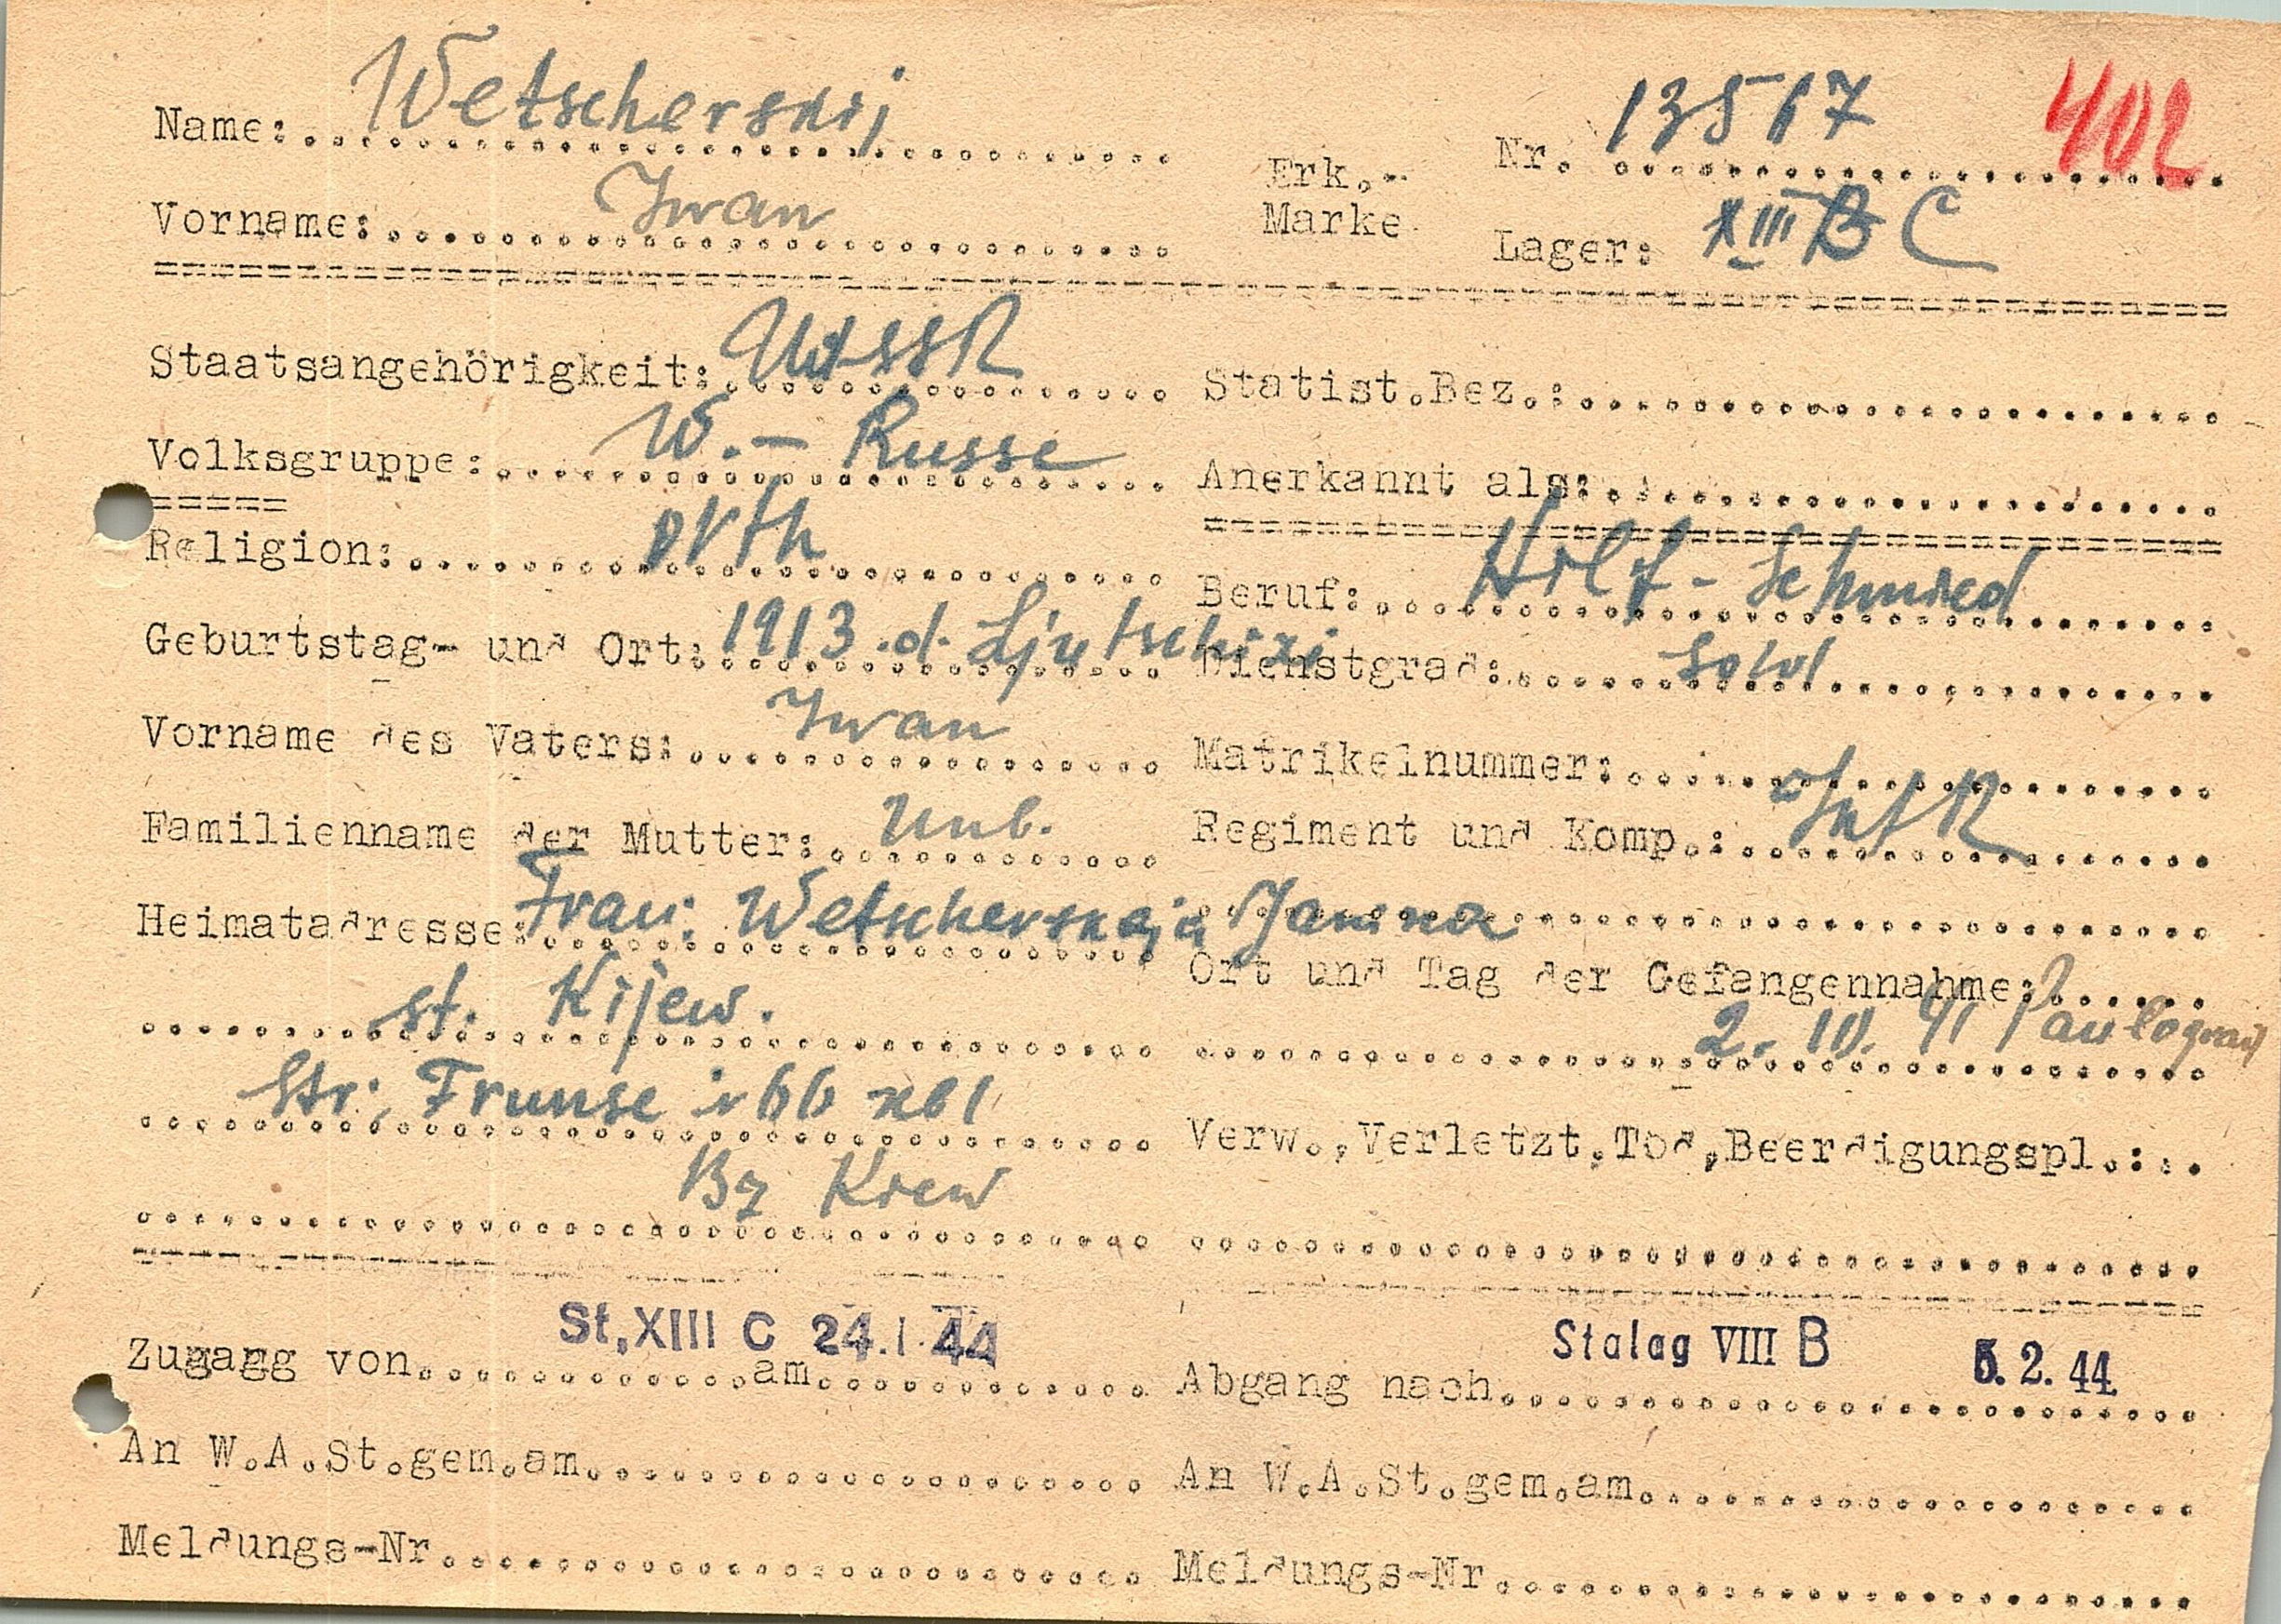 Name: Wetscherskij
Nr. 13517 402
Vorname: Iwan
Erk.-Marke
Lager: XIII B C
Staatsangehörigkeit: UdSSR
Statist.Bez.:
Volksgruppe: W.- Russe
Anerkannt als:
Religion: orth
Beruf: Hilf-Schmied
Geburtstag- und Ort: 1913 d.
Dienstgrad: Sold
Vorname des Vaters: Iwan
Matrikelnummer:
Familienname der Mutter: Unb.
Regiment und Komp.: Inf R
Heimatadresse: Frau: Wetscherskaja Janina
Ort und Tag der Gefangennahme:
st. Kijew.
2. 10. 41 Paulograd
Str; Frunse
Verw.,Verletzt.Tod,Beerdigungspl.:
Bz Kiew
Zugang von St,XIII C am 24.I.44
Abgang nach Stalag VIII B 5.2.44
An W.A.St.gem.am
An W.A.St.gem.am
Meldungs-Nr
Meldungs-Nr